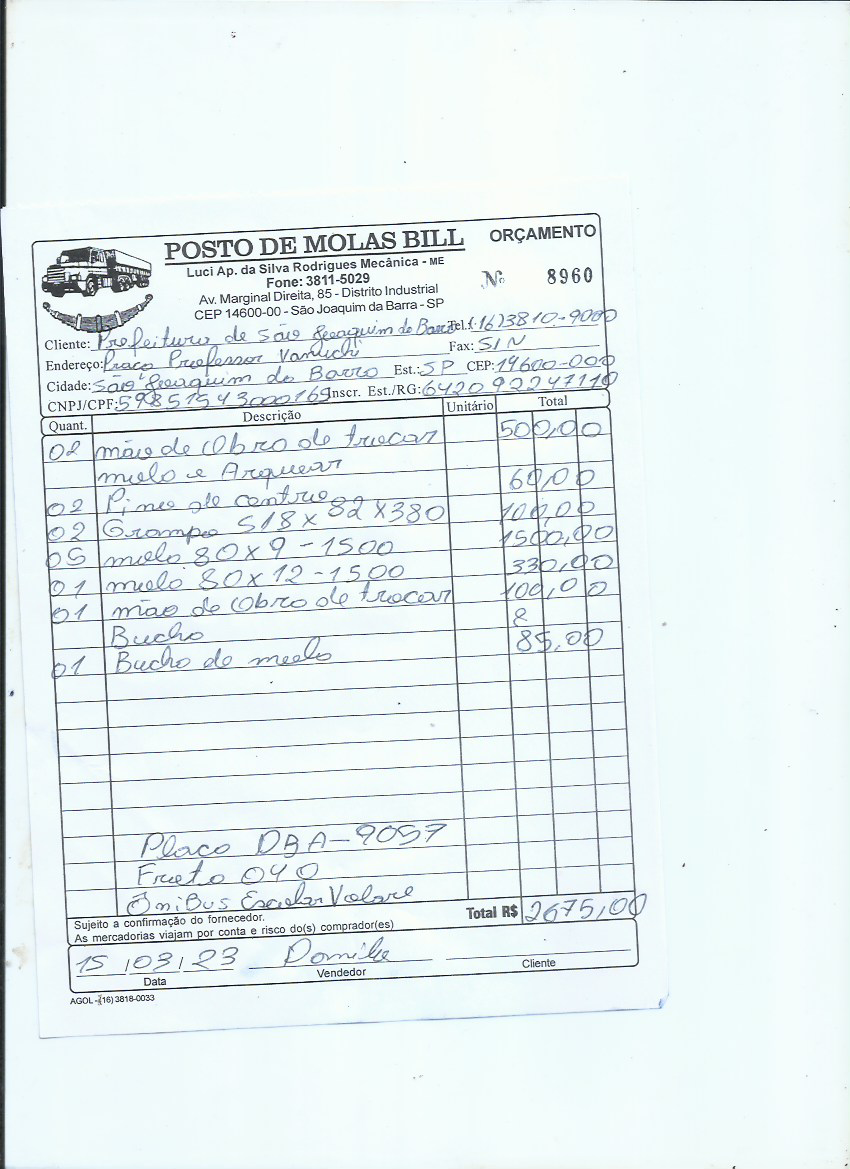 POSTO DE MOLAS BILL ORÇAMENTO
Luci Ap. da Silva Rodrigues Mecânica - ME
Fone: 3811-5029
Nº 8960
Av. Marginal Direita, 85 - Distrito Industrial
CEP 14600-00 - São Joaquim da Barra - SP
Cliente: Prefeitura de São Joaquim da Barra Tel.(16)3810-9000
Endereço: Praça Professor Fax: S/N
Cidade: São Joaquim da Barra Est.: SP CEP: 14600-000
CNPJ/CPF: 59851543000169 Inscr. Est./RG: 642092247110
Quant. Descrição Unitário Total
02 mão de Obra de trocar 500,00
mola e Arquear
02 Pino de centro 60,00
02 Grampo 518 x 82 x 380 100,00
05 mola 80 x 9 - 1500 1500,00
01 mola 80 x 12 - 1500 330,00
01 mão de Obra de trocar 100,00
Bucha
01 Bucha de mola 85,00
Placa DBA-9057
Frota 040
Ônibus Escolar Volare
Sujeito a confirmação do fornecedor.
As mercadorias viajam por conta e risco do(s) comprador(es)
Total R$ 2675,00
15 / 03 / 23
Data Vendedor Cliente
AGOL - (16) 3818-0033